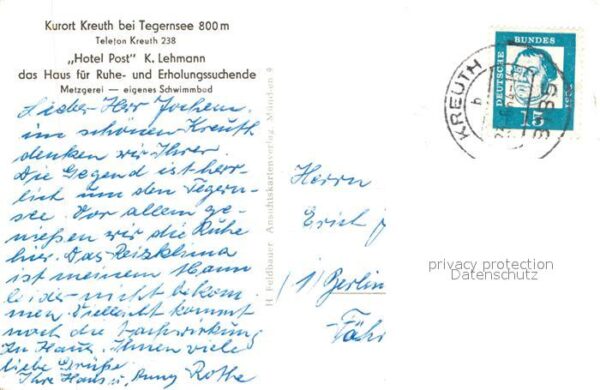 Kurort Kreuth bei Tegernsee 800 m
Telefon Kreuth 238
„Hotel Post" K. Lehmann
das Haus für Ruhe- und Erholungssuchende
Metzgerei — eigenes Schwimmbad
Lieber Herr Jochem,
im schönen Kreuth
denken wir Ihrer.
Die Gegend ist herr-
lich um den Tegern-
see. Vor allem ge-
nießen wir die Ruhe
hier. Das Reizklima
ist meinem Mann
leider nicht bekom-
men. Vielleicht kommt
noch die Nachwirkung
zu Haus. Ihnen viele
liebe Grüße
Ihre Hans u. Anny Rothe
H. Feldbauer Ansichtskartenverlag, München 9
DEUTSCHE BUNDES
15
KREUTH
b
8185
Herrn
Erich J
(1) Berlin
Fähr
privacy protection
Datenschutz